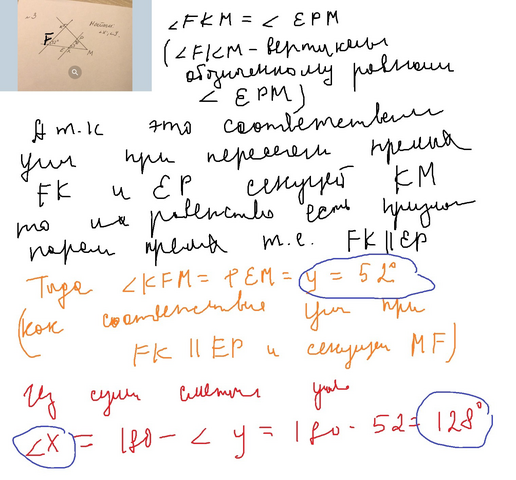 ∠FKM = ∠EPM
(∠FKM - вертикальн
обозначенному равными
∠EPM)
А т.к это соответственн
углы при пересечен прямых
FK и EP секущей KM
то их равенство есть признак
парал прямых т.е. FK || EP
Тогда ∠KFM = PEM = y = 52°
(как соответствие углы при
FK || EP и секущей MF)
Из суммы смежных угл
∠X = 180 - ∠y = 180 - 52 = 128°
F
M